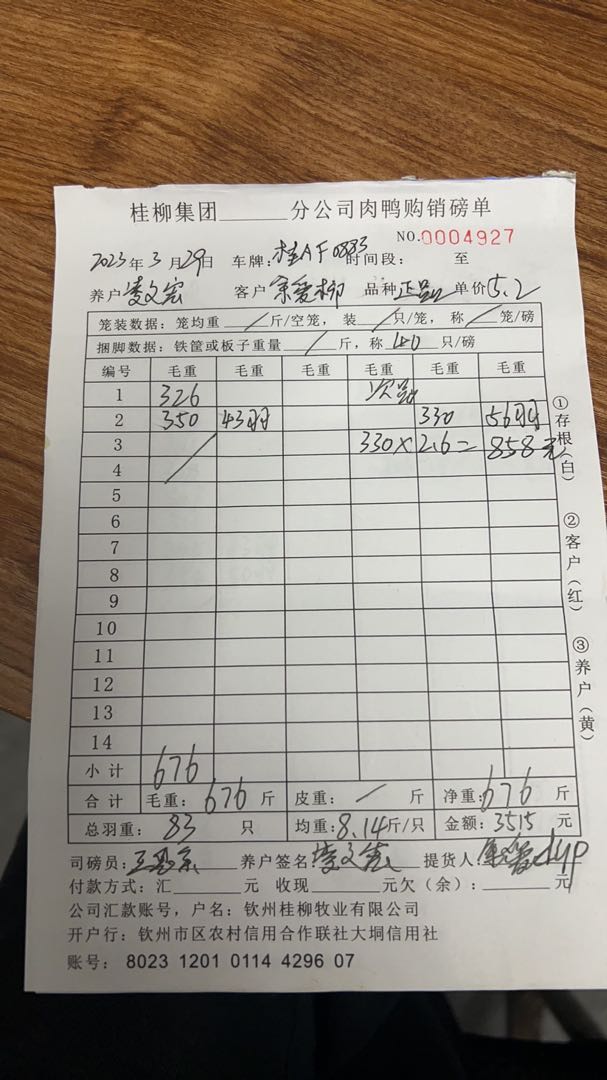 桂柳集团______分公司肉鸭购销磅单
NO.0004927
2023年3月29日 车牌:桂AF0883 时间段: 至
养户 凌文宏 客户 余爱柳 品种 正品 单价 5.2
笼装数据: 笼均重 / 斤/空笼, 装 / 只/笼, 称 / 笼/磅
捆脚数据: 铁筐或板子重量 / 斤, 称 40 只/磅
编号 毛重 毛重 毛重 毛重 毛重 毛重
1 326 次品
2 350 43羽 330 56羽
3 330×2.6=858元
4
5
6
7
8
9
10
11
12
13
14
小计 676
合计 毛重: 676 斤 皮重: / 斤 净重: 676 斤
总羽重: 83 只 均重: 8.14斤/只 金额: 3515 元
司磅员: 养户签名: 提货人:
付款方式: 汇______元 收现______元欠(余):______元
公司汇款账号, 户名: 钦州桂柳牧业有限公司
开户行: 钦州市区农村信用合作联社大垌信用社
账号: 8023 1201 0114 4296 07
①存根(白)
②客户(红)
③养户(黄)